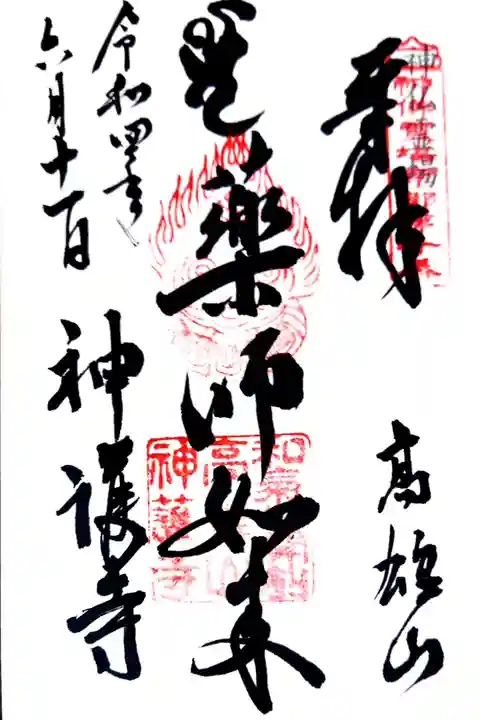 奉拝
高雄山
薬師如来
令和四年
六月十一日
神護寺
神仏霊場
神護寺